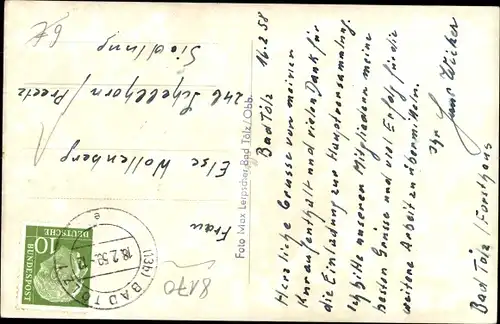 Bad Tölz 16.2.58
Herzliche Grüsse von meinem
Kuraufenthalt und vielen Dank für
die Einladung zur Hauptversammlung.
Ich bitte unseren Mitgliedern meine
besten Grüsse und viel Erfolg für die
weitere Arbeit zu übermitteln.
Ihr
Bad Tölz / Forsthaus
Foto Max Leipscher Bad Tölz/Obb.
Frau
Else Wollenberg
24b Schellhorn/Preetz
Siedlung
8170
(13b) BAD TÖLZ 1
18.2.58
e
10
DEUTSCHE
BUNDESPOST